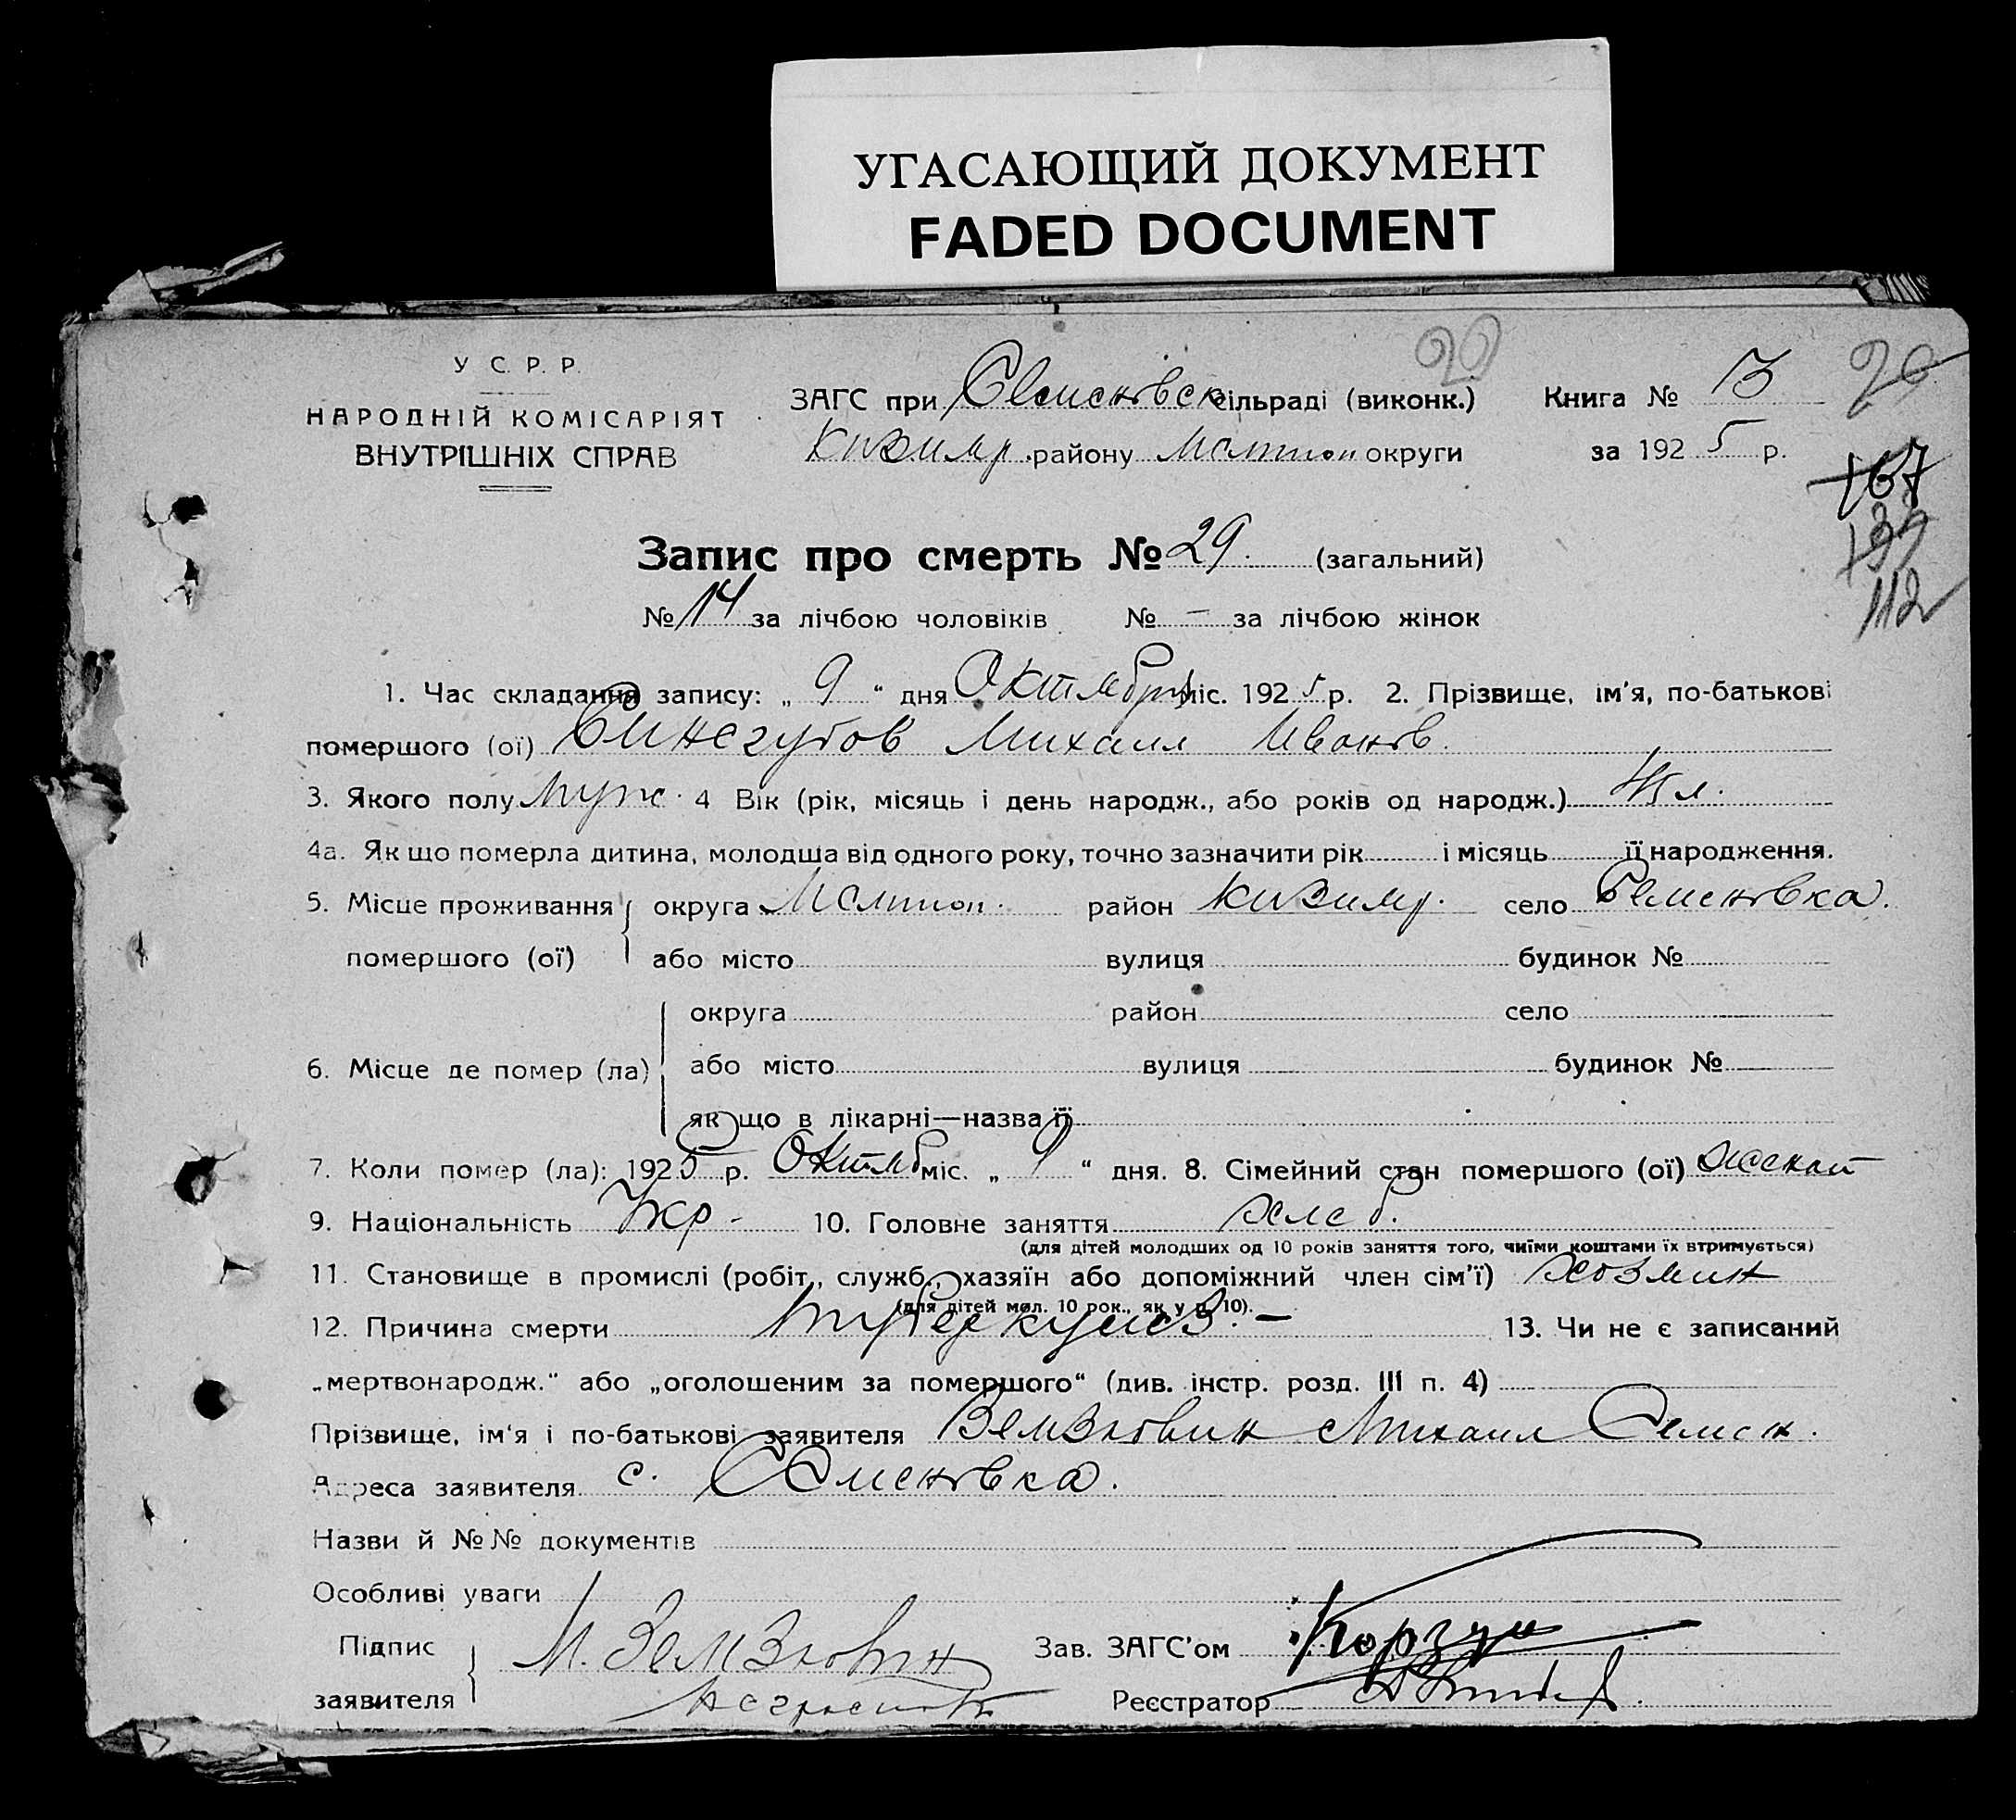 УГАСАЮЩИЙ ДОКУМЕНТ
FADED DOCUMENT
У С. Р. Р.
НАРОДНІЙ КОМІСАРІЯТ
ВНУТРІШНІХ СПРАВ
20
ЗАГС при Семеновск сільраді (виконк.) Книга № 3
20
Кизияр. району Мелитоп округи за 192 5 р.
167
139
112
Запис про смерть № 29. (загальний)
№ 14 за лічбою чоловіків № — за лічбою жінок
1. Час складання запису: „ 9 “ дня Октября міс. 192 5 р. 2. Прізвище, ім'я, по-батькові
помершого (ої) Синегубов Михаил Иванов.
3. Якого полу Муж. 4 Вік (рік, місяць і день народж., або років од народж.) л.
4а. Як що померла дитина, молодша від одного року, точно зазначити рік і місяць її народження.
5. Місце проживання округа Мелитоп. район Кизияр. село Семеновка.
помершого (ої) або місто вулиця будинок №
округа район село
6. Місце де помер (ла) або місто вулиця будинок №
як що в лікарні—назва її
7. Коли помер (ла): 192 5 р. Октяб міс. „ 9 “ дня. 8. Сімейний стан помершого (ої) женат
9. Національність Укр - 10. Головне заняття хлеб.
(для дітей молодших од 10 років заняття того, чиїми коштами їх втримується)
11. Становище в промислі (робіт., служб., хазяїн або допоміжний член сім'ї) хозяин
(для дітей мол. 10 рок., як у п. 10).
12. Причина смерти туберкулез. — 13. Чи не є записаний
„мертвонародж.“ або „оголошеним за помершого“ (див. інстр. розд. III п. 4)
Прізвище, ім'я і по-батькові заявителя Михаил Семен.
Адреса заявителя с. Семеновка.
Назви й №№ документів
Особливі уваги
Підпис М. Зав. ЗАГС'ом Корзун
заявителя неграмот Реєстратор